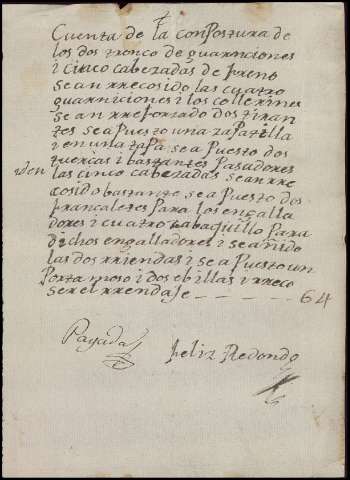 Cuenta de la conpostura de
los dos tronco de guarniciones
i cinco cabezadas de freno
se an rrecosido las cuatro
guarniciones i los collerines
se an rreforzado dos tiran
tes se a puesto una zapatilla
i en una tapa se a puesto dos
tuercas i bastantes pasadores
iden las cinco cabezadas se an rre
cosido bastante se a puesto dos
francaletes para los engalla
dores i cuatro tabaquillo para
dichos engalladores i se añido
las dos rriendas i se a puesto un
porta moso i dos ebillas i rreco
ser el rrendaje — — — — — 64
Pagadas
Feliz Redondo